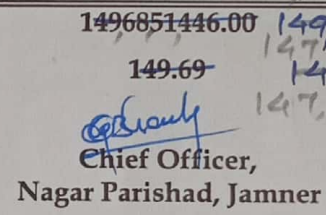 1496851446.00 149
147
149.69 14
147,
Chief Officer,
Nagar Parishad, Jamner